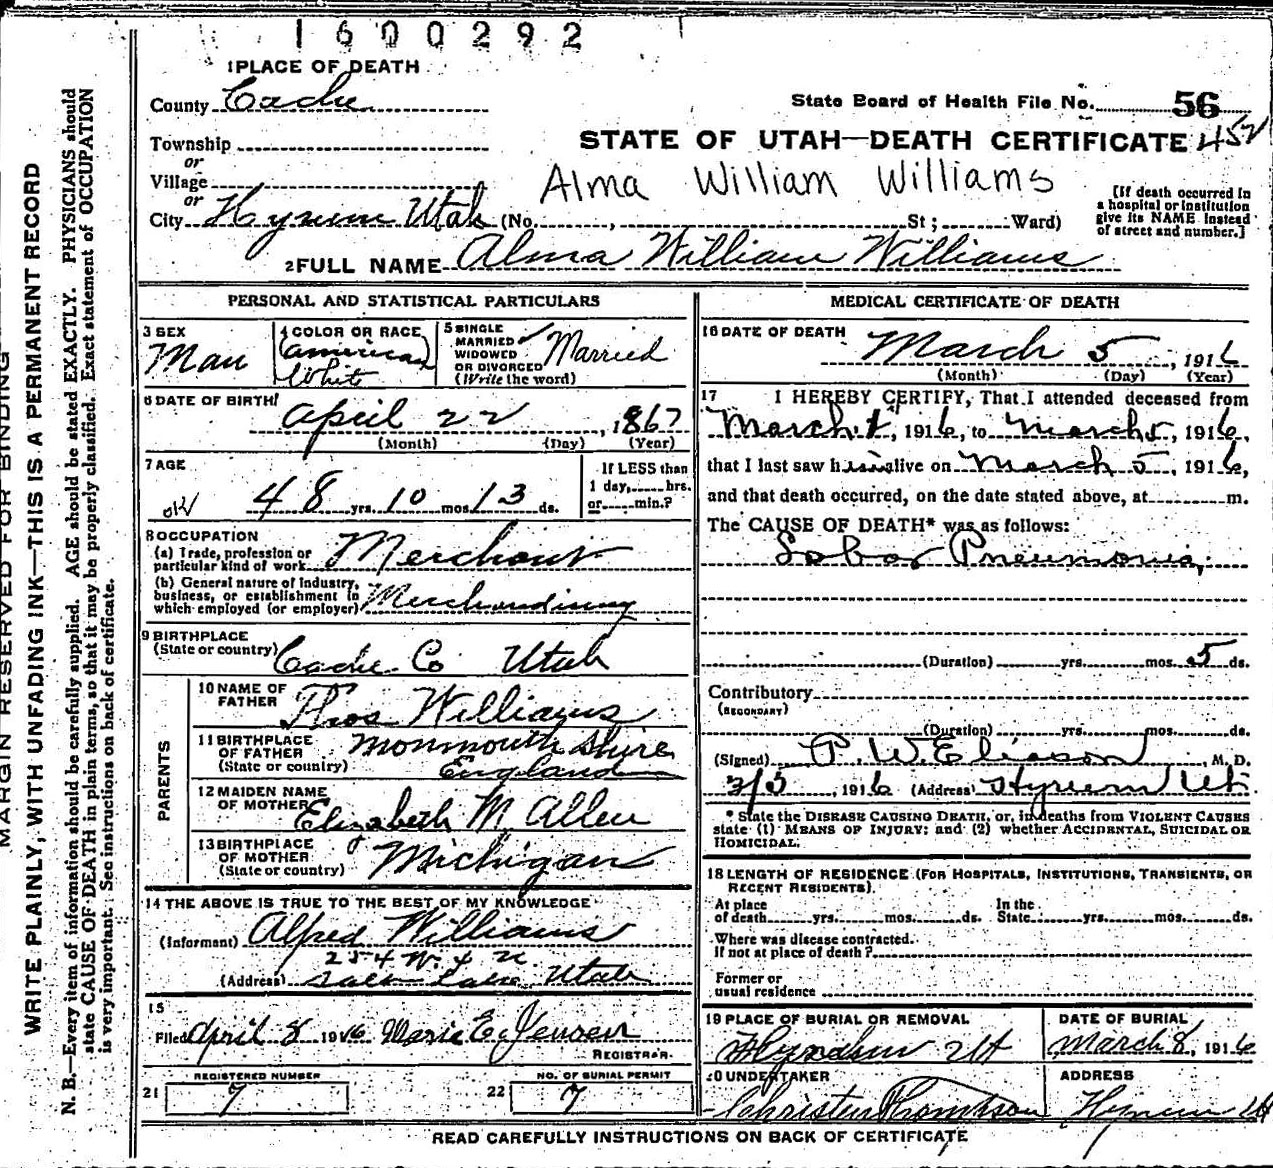 1600292
1 PLACE OF DEATH
County Cache
State Board of Health File No. 56
Township
STATE OF UTAH—DEATH CERTIFICATE 452
or
Village
Alma William Williams
or
City Hyrum Utah (No. , St; Ward)
[If death occurred in
a hospital or institution
give its NAME instead
of street and number.]
2 FULL NAME Alma William Williams
PERSONAL AND STATISTICAL PARTICULARS
3 SEX
Man
4 COLOR OR RACE
(American)
White
5 SINGLE
MARRIED
WIDOWED
OR DIVORCED
(Write the word)
Married
6 DATE OF BIRTH
April 22, 1867
(Month) (Day) (Year)
7 AGE
OK 48 yrs. 10 mos. 13 ds.
If LESS than
1 day, hrs.
or min.?
8 OCCUPATION
(a) Trade, profession or
particular kind of work Merchant
(b) General nature of Industry,
business, or establishment in
which employed (or employer) Merchandising
9 BIRTHPLACE
(State or country) Cache Co Utah
PARENTS
10 NAME OF
FATHER Thos Williams
11 BIRTHPLACE
OF FATHER
(State or country) Monmouth Shire
England
12 MAIDEN NAME
OF MOTHER Elizabeth M Allen
13 BIRTHPLACE
OF MOTHER
(State or country) Michigan
14 THE ABOVE IS TRUE TO THE BEST OF MY KNOWLEDGE
(Informant) Alfred Williams
254 W. 4 N.
(Address) Salt Lake Utah
15
Filed April 8 1916 Marie E. Jensen
REGISTRAR.
21 REGISTERED NUMBER
7
22 NO. OF BURIAL PERMIT
7
MEDICAL CERTIFICATE OF DEATH
16 DATE OF DEATH March 5, 1916
(Month) (Day) (Year)
17 I HEREBY CERTIFY, That I attended deceased from
March 1, 1916, to March 5, 1916,
that I last saw him alive on March 5, 1916,
and that death occurred, on the date stated above, at m.
The CAUSE OF DEATH* was as follows:
Lobar Pneumonia,
(Duration) yrs. mos. 5 ds.
Contributory
(SECONDARY)
(Duration) yrs. mos. ds.
(Signed) P. W. Eliason, M. D.
3/5, 1916 (Address) Hyrum Ut.
* State the DISEASE CAUSING DEATH, or, in deaths from VIOLENT CAUSES
state (1) MEANS OF INJURY; and (2) whether ACCIDENTAL, SUICIDAL OR
HOMICIDAL.
18 LENGTH OF RESIDENCE (FOR HOSPITALS, INSTITUTIONS, TRANSIENTS, OR
RECENT RESIDENTS).
At place
of death yrs. mos. ds.
In the
State yrs. mos. ds.
Where was disease contracted.
If not at place of death?
Former or
usual residence
19 PLACE OF BURIAL OR REMOVAL
Hyrum Ut
DATE OF BURIAL
March 8, 1916
20 UNDERTAKER
Christen Thompson
ADDRESS
Hyrum Ut
READ CAREFULLY INSTRUCTIONS ON BACK OF CERTIFICATE
MARGIN RESERVED FOR BINDING
WRITE PLAINLY, WITH UNFADING INK—THIS IS A PERMANENT RECORD
N. B.—Every item of information should be carefully supplied. AGE should be stated EXACTLY. PHYSICIANS should
state CAUSE OF DEATH in plain terms, so that it may be properly classified. Exact statement of OCCUPATION
is very important. See instructions on back of certificate.